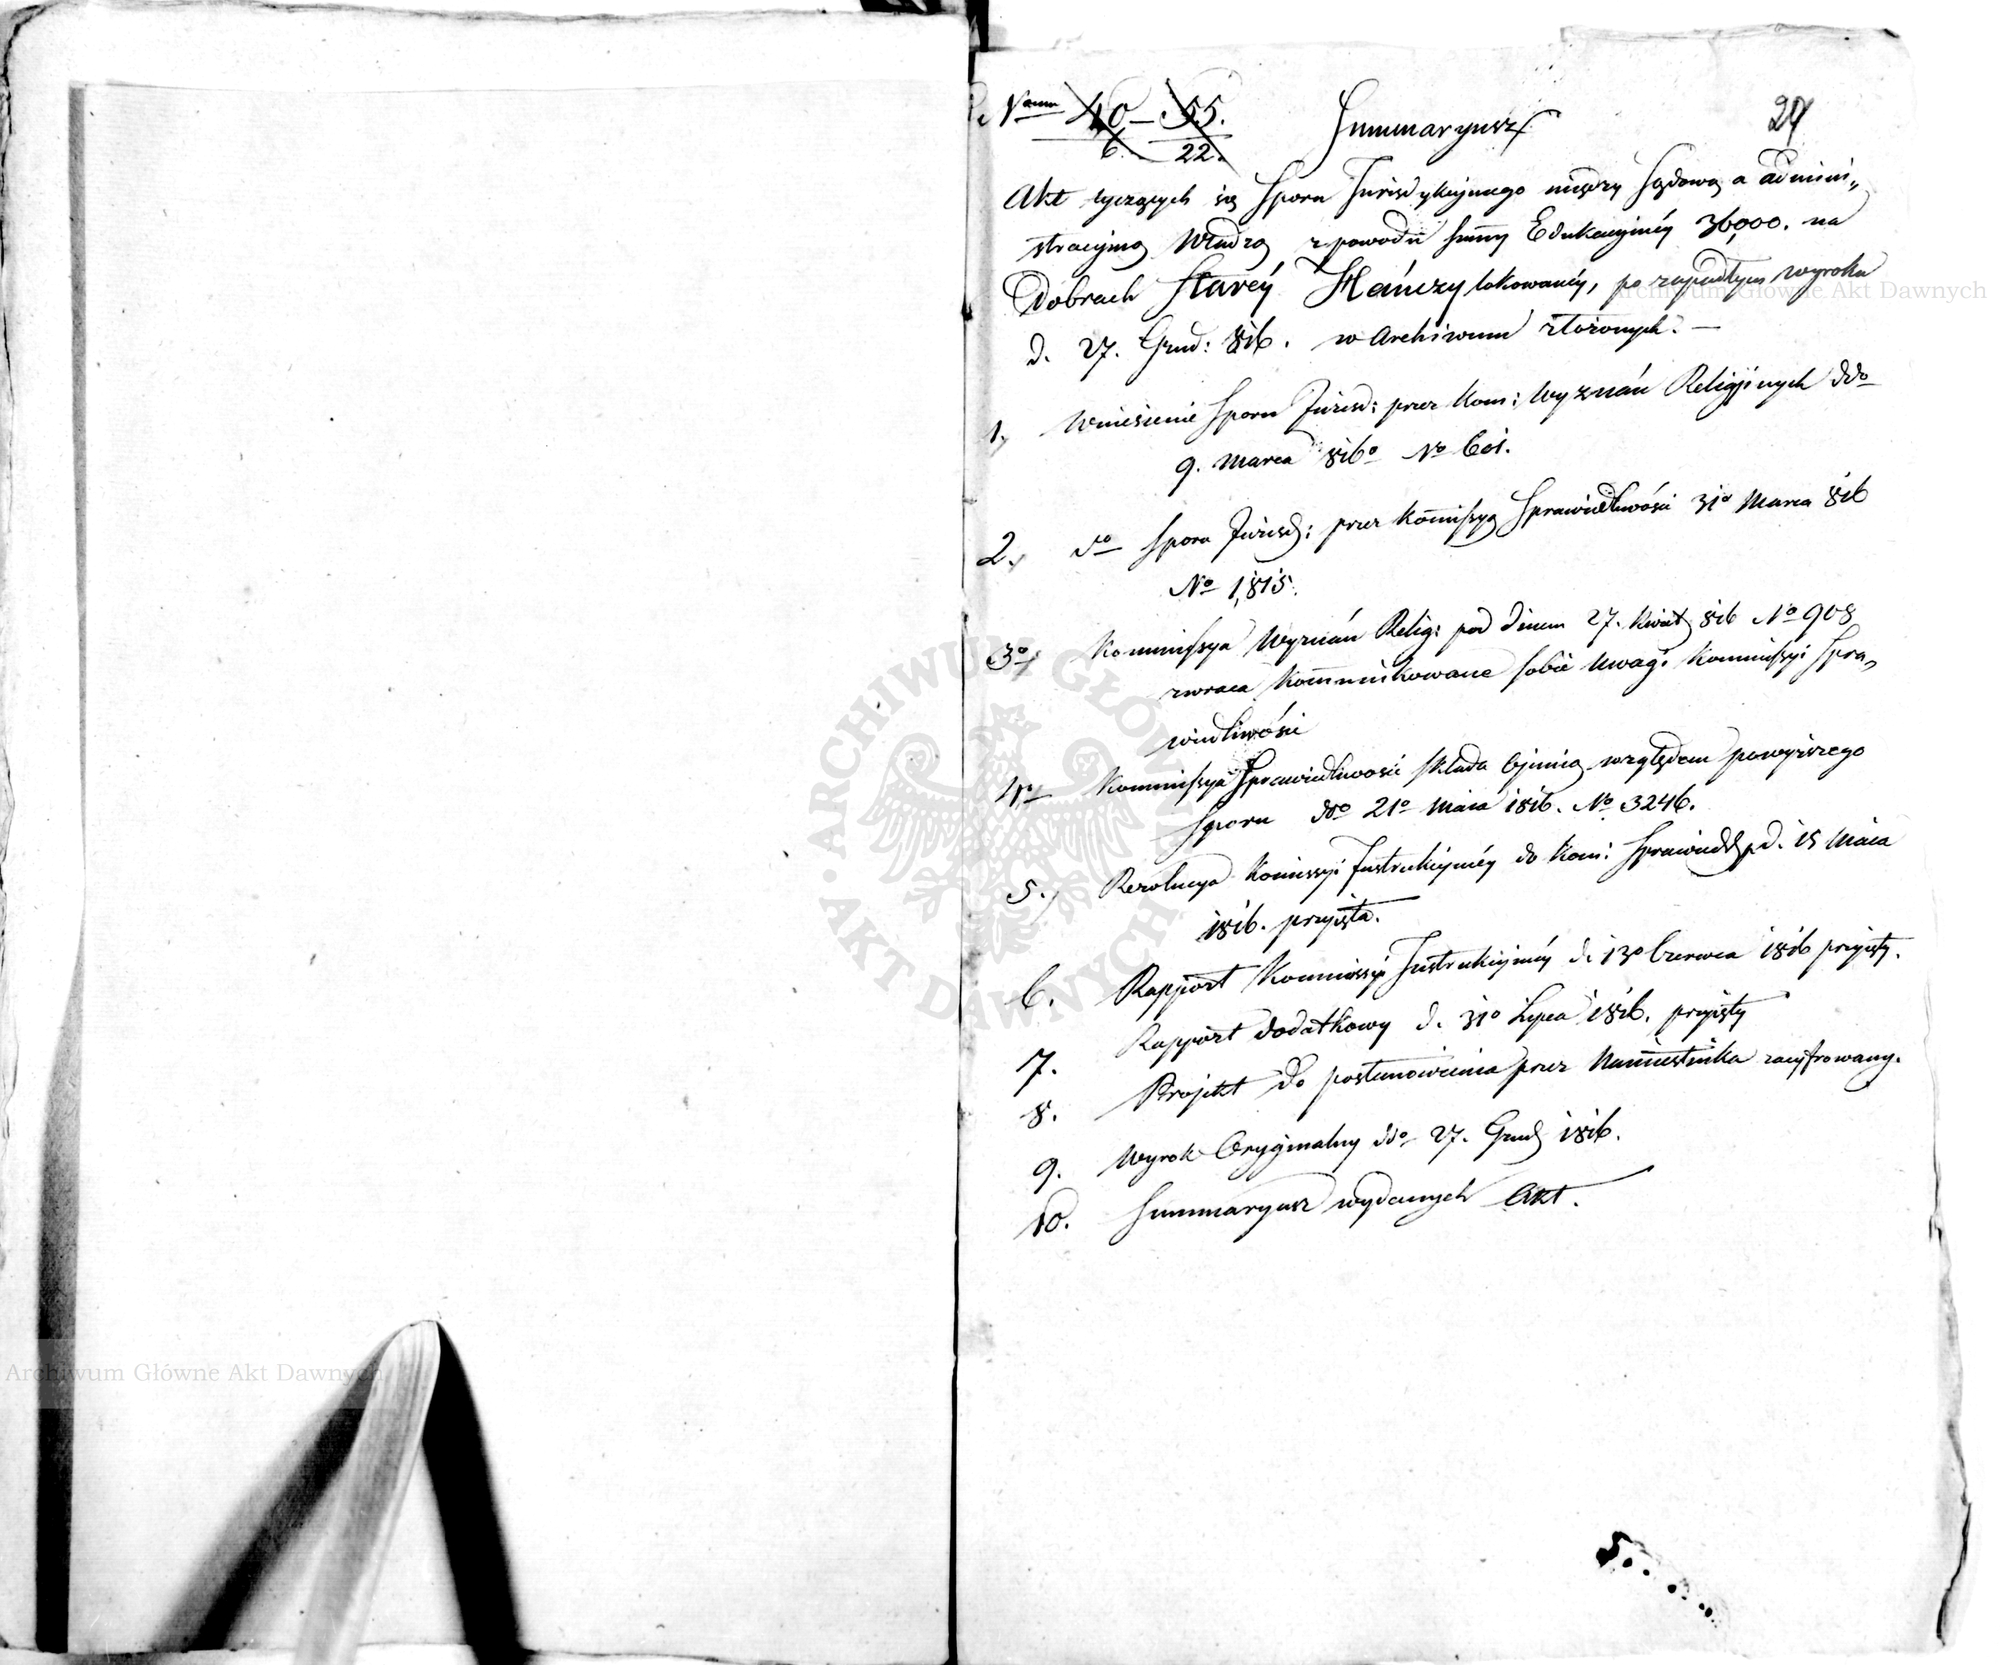 Num 40 – 55.
6. 22.
Summaryusz
24
Akt tyczących się Sporu Jurisdykcyinego między Sądową a admini„
stracyiną Władzą z powodu summy Edukacyinéy 36,000. na
Dobrach Staréy Hańczy lokowanéy, po zapadłym wyroku
d. 27. Grud: 816. w Archiwum złożonych. —
1, Wniesienie Sporu Jurisd: przez Kom: Wyznań Religijnych ddo
9. Marca 816o No 601.
2., do Sporu Jurisd: przez Kommissyą Sprawiedliwości 31o Marca 816
No 1,815.
3o, Kommissya Wyznań Relig: pod dniem 27. Kwiet 816 No 908
zwraca Kommunikowane sobie Uwagi Kommissyi Spra„
wiedliwości
4o, Kommissya Sprawiedliwości składa Opinią względem powyższego
Sporu ddo 21o Maia 1816. No 3246.
5., Rezolucya Komissyi Instrukcyinéy do Kom: Sprawiedl. d. 15 Maia
1816. przyięta.
6. Rapport Kommissyi Instrukcyinéy d. 13o Czerwca 1816 przyięty.
7. Rapport dodatkowy d. 31o Lipca 1816. przyięty
8. Projekt do postanowienia przez Namiestnika zacyfrowany.
9. Wyrok Oryginalny ddo 27. Grud 1816.
10. Summaryusz wydanych Akt.
Archiwum Główne Akt Dawnych
ARCHIWUM GŁÓWNE • AKT DAWNYCH •
Archiwum Główne Akt Dawnych